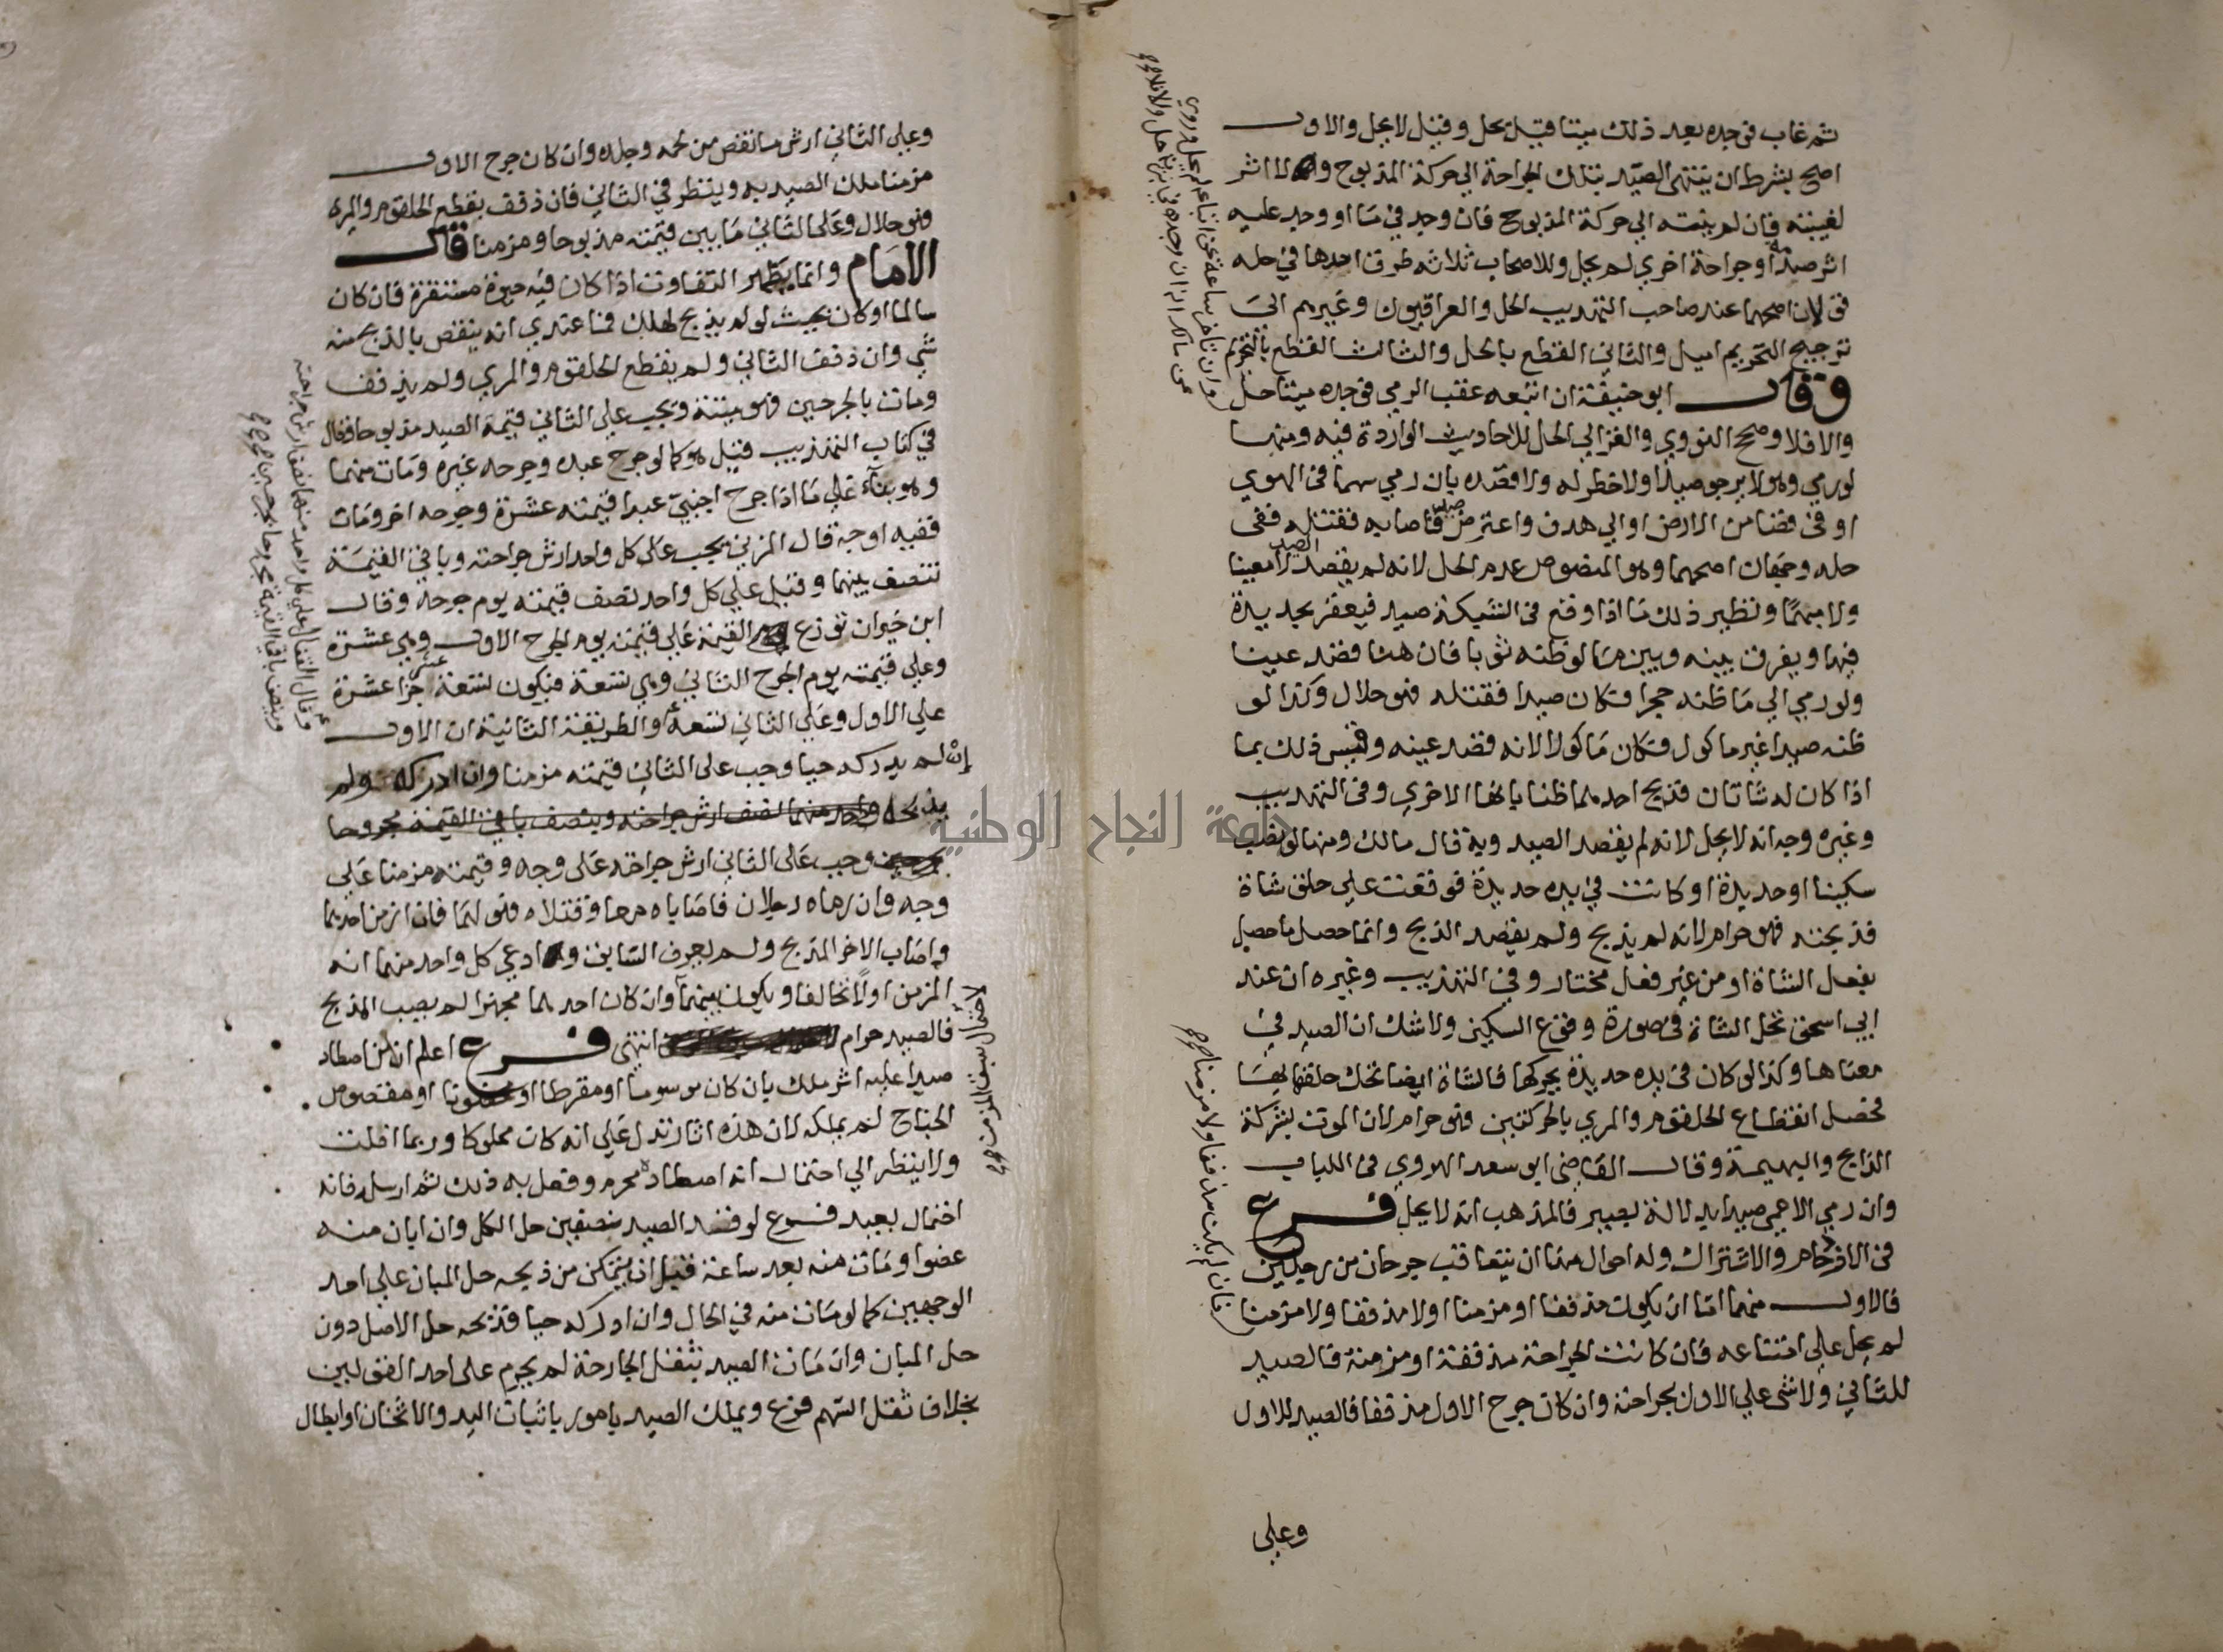 ثم غاب فوجده بعد ذلك ميتا قيل يحل وقيل لا يحل والاول
اصح بشرط ان ينتهي الصيد بتلك الجراحة الي حركة المذبوح ولا اثر
لغيبته فان لم ينته الي حركة المذبوح فان وجد في ما او وجد عليه
اثر صدمة او جراحة اخري لم يحل وللاصحاب ثلاثة طرق احدها في حله
قولان اصحهما عند صاحب التهذيب الحل والعراقيون وغيرهم الى
ترجيح التحريم اميل والثاني القطع بالحل والثالث القطع بالتحريم
وقال ابو حنيفة ان اتبعه عقب الرمي فوجده ميتا حل
والا فلا وصحح النووي والغزالي الحل للاحاديث الواردة فيه ومنها
لو رمي وهو لا يرجو صيدا ولا خطر له ولا قصده بان رمي سهما في الهوي
او في فضا من الارض او الي هدف واعترض صيد فاصابه فقتله ففي
حله وجهان اصحهما وهو المنصوص عدم الحل لانه لم يقصد الصيد لا معينا
ولا مبهما ونظير ذلك ما اذا وقع في الشبكة صيد فيعقر بحديدة
فيها ويفرق بينه وبين ما لو ظنه ثوبا فان هنا قصد عينا
ولو رمي الي ما ظنه حجرا فكان صيدا فقتله فهو حلال وكذا لو
ظنه صيدا غير ماكول فكان ماكولا لانه قصد عينه وقيس ذلك بما
اذا كان له شاتان فذبح احدهما ظنا بانها الاخري وفي التهذيب
وغيره وجه انه لا يحل لانه لم يقصد الصيد وبه قال مالك ومنها لو نصب
سكينا او حديدة او كانت في يده حديدة فوقعت علي حلق شاة
فذبحته فهو حرام لانه لم يذبح ولم يقصد الذبح وانما حصل ما حصل
بفعل الشاة او من غير فعل مختار وفي التهذيب وغيره ان عند
ابي اسحق تحل الشاة في صورة وقوع السكين ولا شك ان الصيد في
معناها وكذا لو كان في يده حديدة يحركها فالشاة ايضا تحك حلقها بها
فحصل انقطاع الحلقوم والمري بالحركتين فهو حرام لان الموت بشركة
الذابح والبهيمة وقال القاضي ابو سعد الهروي في اللباب
وان رمي الاعمي صيدا بدلالة بصير فالمذهب انه لا يحل فرع
في الازدحام والاشتراك وله احوال منها ان يتعاقب جرحان من رجلين
فالاول منهما اما ان يكون مذففا او مزمنا اولا مذففا ولا مزمنا
لم يحل علي امتناعه فان كانت الجراحة مذففة او مزمنة فالصيد
للثاني ولا شي علي الاول بجراحته وان كان جرح الاول مذففا فالصيد للاول
وعلي
فان لم يكن مذففا ولا مزمنا
وعلي الثاني ارش ما نقص من لحمه وجلده وان كان جرح الاول
مزمنا ملك الصيد به وينظر في الثاني فان ذفف بقطع الحلقوم والمري
فهو حلال وعلى الثاني ما بين قيمته مذبوحا ومزمنا قال
الامام وانما يظهر التفاوت اذا كان فيه حيوة مستقرة فان كان
سالما او كان بحيث لو لم يذبح لهلك فما عندي انه ينقص بالذبح منه
شي وان ذفف الثاني ولم يقطع الحلقوم والمري ولم يذفف
ومات بالجرحين فهو ميتة ويجب علي الثاني قيمة الصيد مذبوحا فقال
في كتاب التهذيب قيل هو كما لو جرح عبده وجرحه غيره ومات منهما
وهو بناء علي ما اذا جرح اجنبي عبدا قيمته عشرة وجرحه اخر ومات
ففيه اوجه قال المزني يجب على كل واحد ارش جراحته وباقي القيمة
تتنصف بينهما وقيل علي كل واحد نصف قيمته يوم جرحه وقال
ابن خيران توزع القيمة علي قيمته يوم الجرح الاول وهي عشرة
وعلي قيمته يوم الجرح الثاني وهي تسعة فيكون تسعة عشر جزا عشرة
علي الاول وعلي الثاني تسعة والطريقة الثانية ان الاول
إن لم يدركه حيا وجب على الثاني قيمته مزمنا وان ادركه ولم
يذبحه واحد منهما لنصف ارش جراحته وينصف باقي القيمة مجروحا
بجرحين وجب على الثاني ارش جراحته على وجه وقيمته مزمنا علي
وجه وان رماه رجلان فاصاباه معا وقتلاه فهو لهما فان ازمن احدهما
واصاب الاخر المذبح ولم يعرف السابق وادعي كل واحد منهما انه
المزمن اولا تحالفا ويكون بينهما وان كان احدهما مجهزا لم يصب المذبح
فالصيد حرام انتهى فرع اعلم ان من اصطاد
صيدا عليه اثر ملك بان كان موسوما او مقرطا او مخضوبا او مقصوص
الجناح لم يملكه لان هذه اثار تدل علي انه كان مملوكا وربما افلت
ولا ينظر الي احتمال انه اصطاده محرم وفعل به ذلك ثم ارسله فانه
احتمال بعيد فرع لو قد الصيد بنصفين حل الكل وان ابان منه
عضوا ومات منه بعد ساعة قبل ان يتمكن من ذبحه حل المبان علي احد
الوجهين كما لو مات منه في الحال وان ادركه حيا فذبحه حل الاصل دون
حل المبان وان مات الصيد بثقل الجارحة لم يحرم على احد القولين
بخلاف ثقل السهم فرع ويملك الصيد بامور باثبات اليد والاثخان او ابطال
لاحتمال سبق المزمن
وقال القفال علي كل واحد منهما نصف ارش جراحته
وينصف باقي القيمة مجروحا بجرحين
جامعة النجاح الوطنية